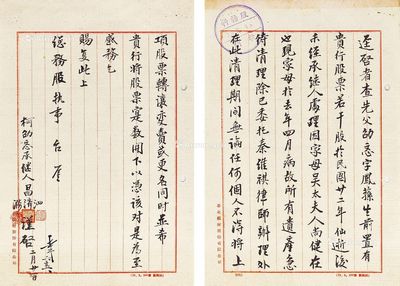 逕啟者查先父劭忞字鳳蓀生前置有
貴行股票若干股於民國廿二年仙逝後
未經承繼人處理因家母吳太夫人尚健在
也現家母於去年四月病故所有遺產急
待清理除已委托秦維祺律師辦理外
在此清理期間無論任何個人不得將上
項股票轉讓變賣或更名同時並希
貴行將股票寔數開下以憑核對是爲至
感務乞
賜复此上
總務股執事 台詧
柯劭忞承繼人昌泗
清
濟
謹啟
二月廿